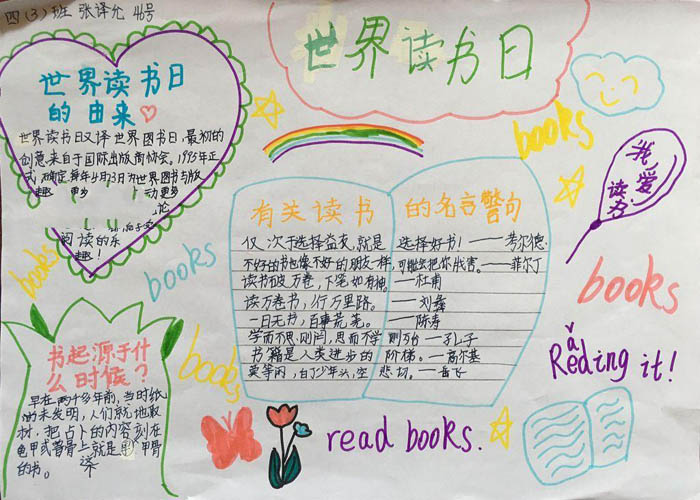 四(3)班 张译允 46号
世界读书日
世界读书日
的由来
世界读书日又译世界图书日,最初的
创意来自于国际出版商协会。1995年正
式确定每年4月23日为世界图书与版
趣 更多 动更多
阅读的乐
趣!
books
books
books
我爱
读书
books
books
有关读书的名言警句
仅次于选择益友,就是选择好书!——考尔德
不好的书也像不好的朋友一样,可能会把你戕害。——菲尔丁
读书破万卷,下笔如有神。——杜甫
读万卷书,行万里路。——刘彝
一日无书,百事荒芜。——陈寿
学而不思则罔,思而不学则殆——孔子
书籍是人类进步的阶梯。——高尔基
莫等闲,白了少年头,空悲切。——岳飞
书起源于什
么时候?
早在两千多年前,当时纸
尚未发明,人们就地取
材,把占卜的内容刻在
龟甲或兽骨上,这就是 甲骨
的书。
books
a
Reding it!
read books.